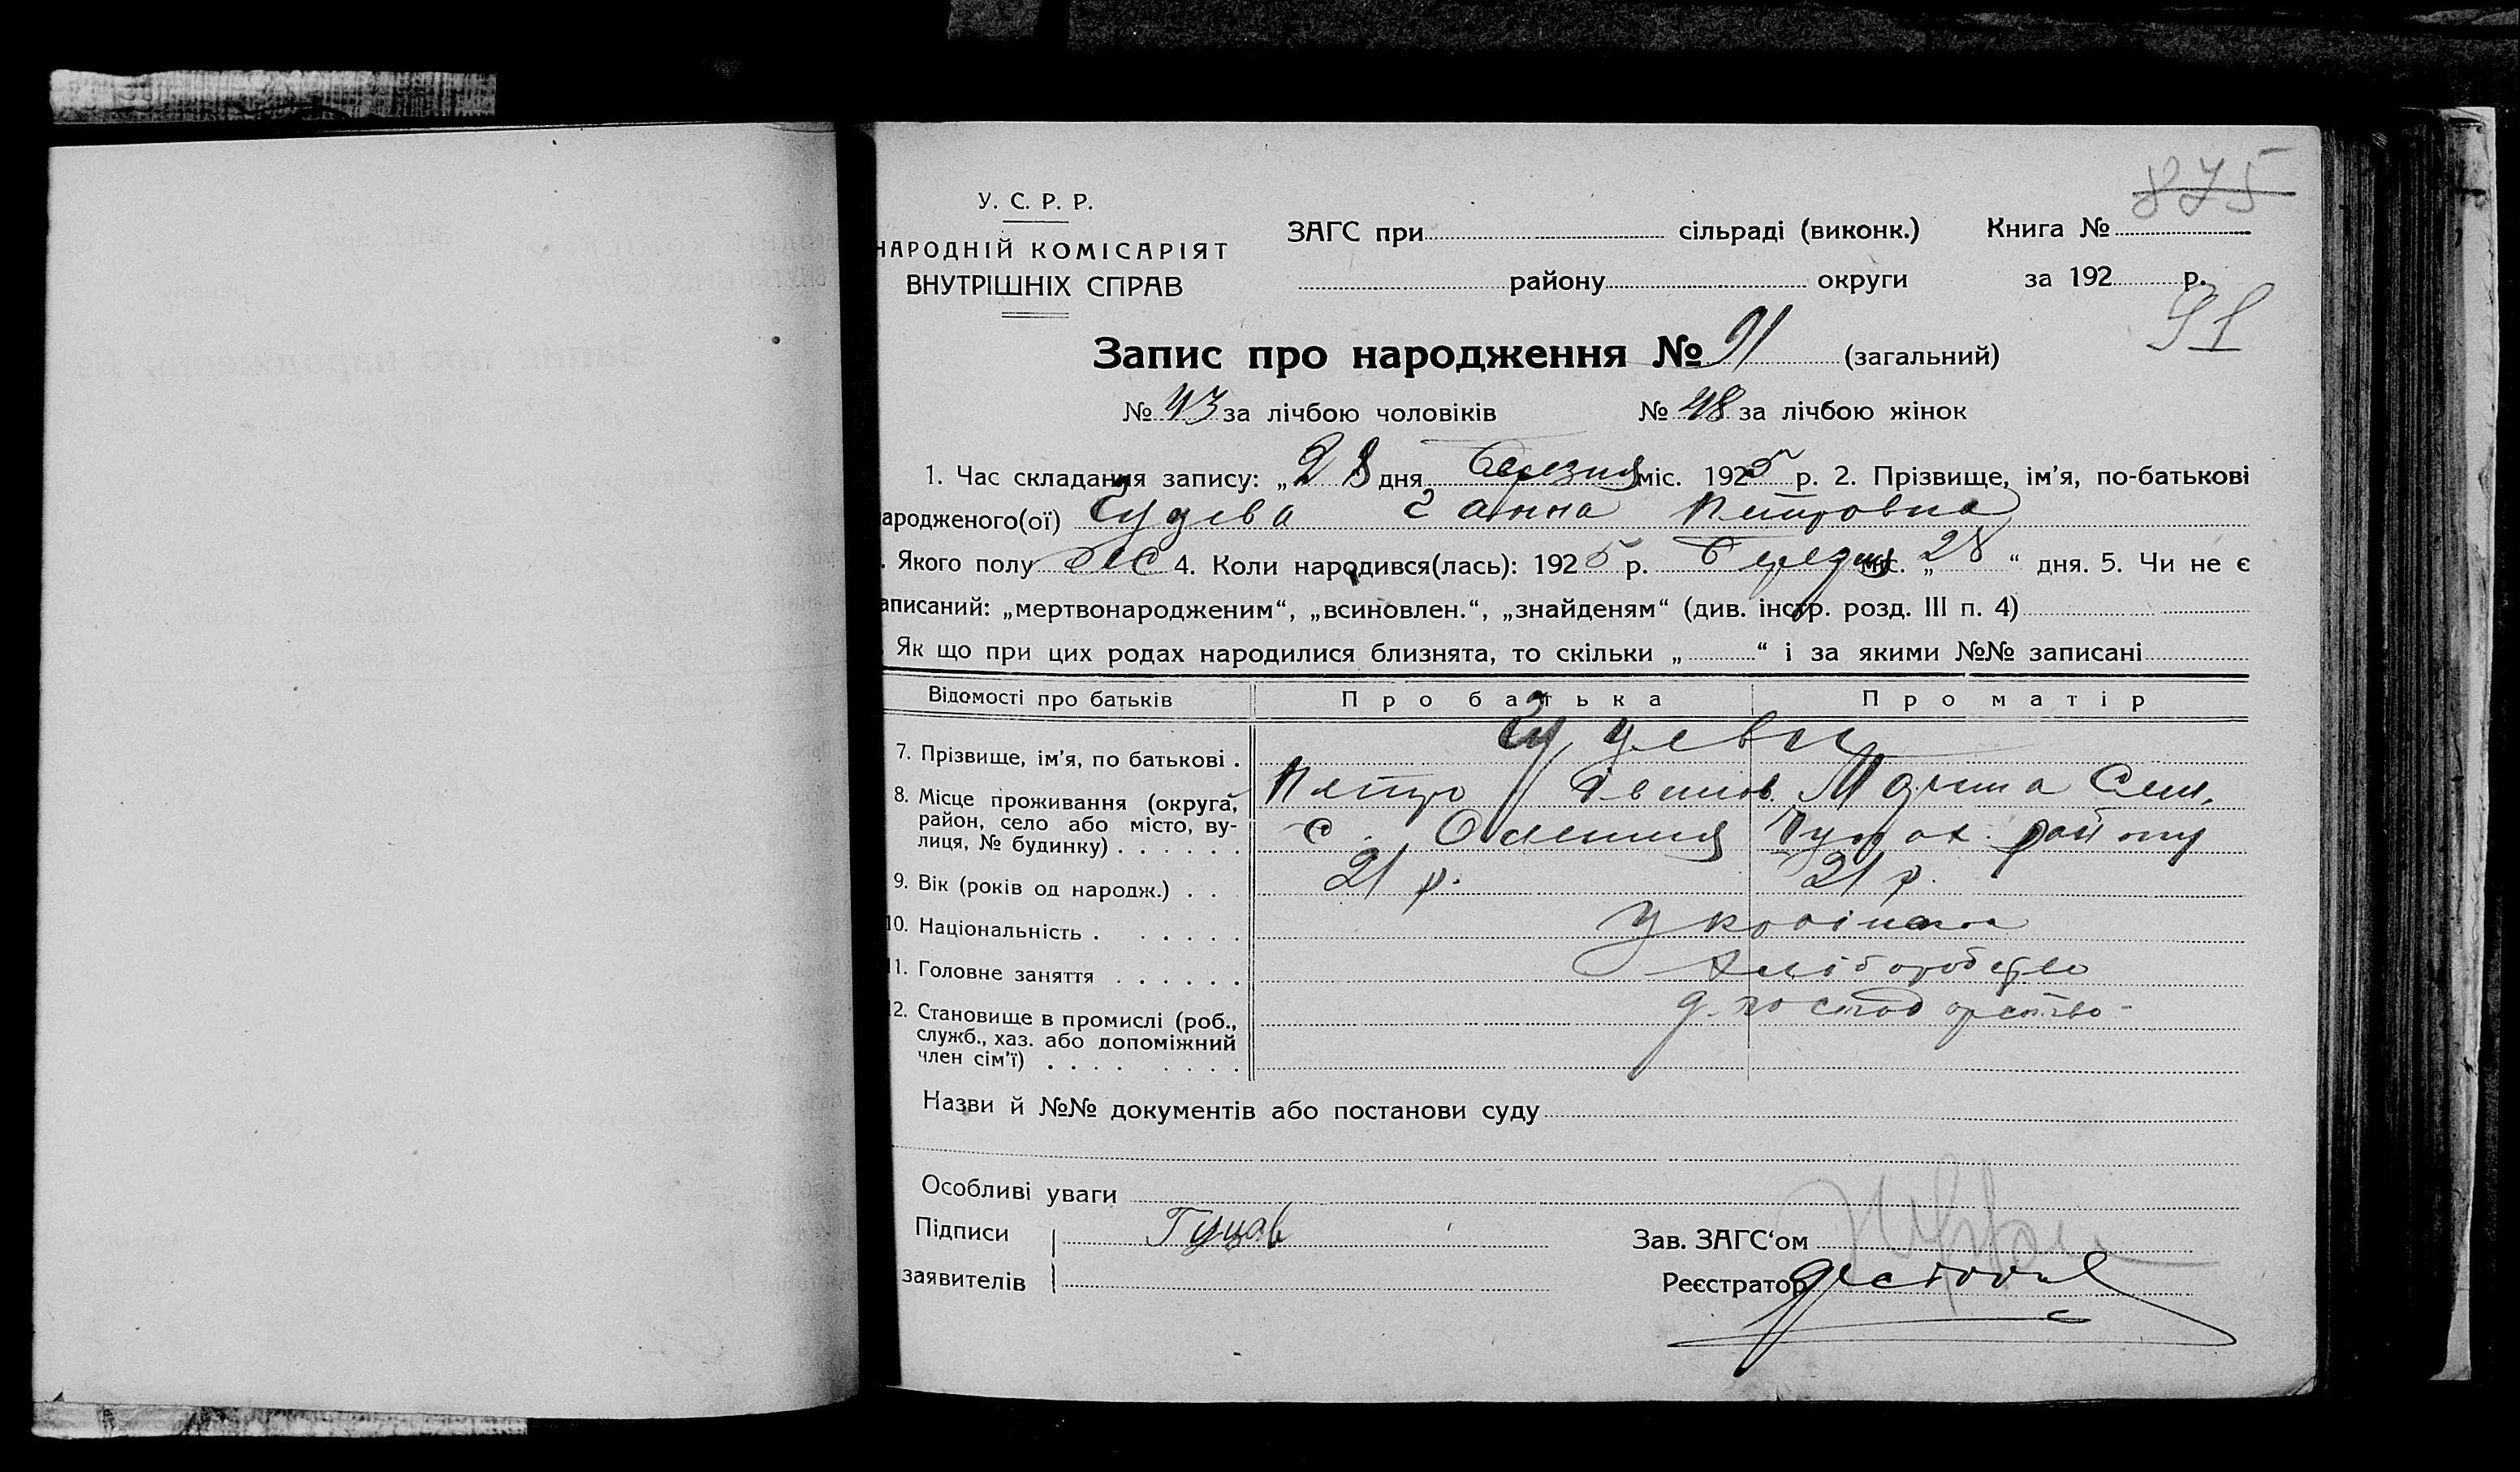 875
У. С. Р. Р.
НАРОДНІЙ КОМІСАРІЯТ
ВНУТРІШНІХ СПРАВ
ЗАГС при сільраді (виконк.) Книга №
району округи за 192 р.
91
Запис про народження № 91 (загальний)
№ 43 за лічбою чоловіків № 48 за лічбою жінок
1. Час складання запису: „28 дня Березня міс. 1925 р. 2. Прізвище, ім'я, по-батькові
ародженого(ої) Ганна Петровна
. Якого полу жс 4. Коли народився(лась): 1925 р. Березня міс. „28“ дня. 5. Чи не є
аписаний: „мертвонародженим“, „всиновлен.“, „знайденям“ (див. інстр. розд. III п. 4)
Як що при цих родах народилися близнята, то скільки „ “ і за якими №№ записані
Відомості про батьків Про батька Про матір
7. Прізвище, ім'я, по батькові .
Петро Мотина Сем.
8. Місце проживання (округа, район, село або місто, вулиця, № будинку) . . . . . . с. району
9. Вік (років од народж.) . . 21 р. 21 р.
10. Національність . . . . . . Україна
11. Головне заняття . . . . . . Хліборобство
12. Становище в промислі (роб., служб., хаз. або допоміжний член сім'ї) . . . . . . . . д. господарство
Назви й №№ документів або постанови суду
Особливі уваги
Підписи Гуцав
заявителів
Зав. ЗАГС'ом
Реєстратор